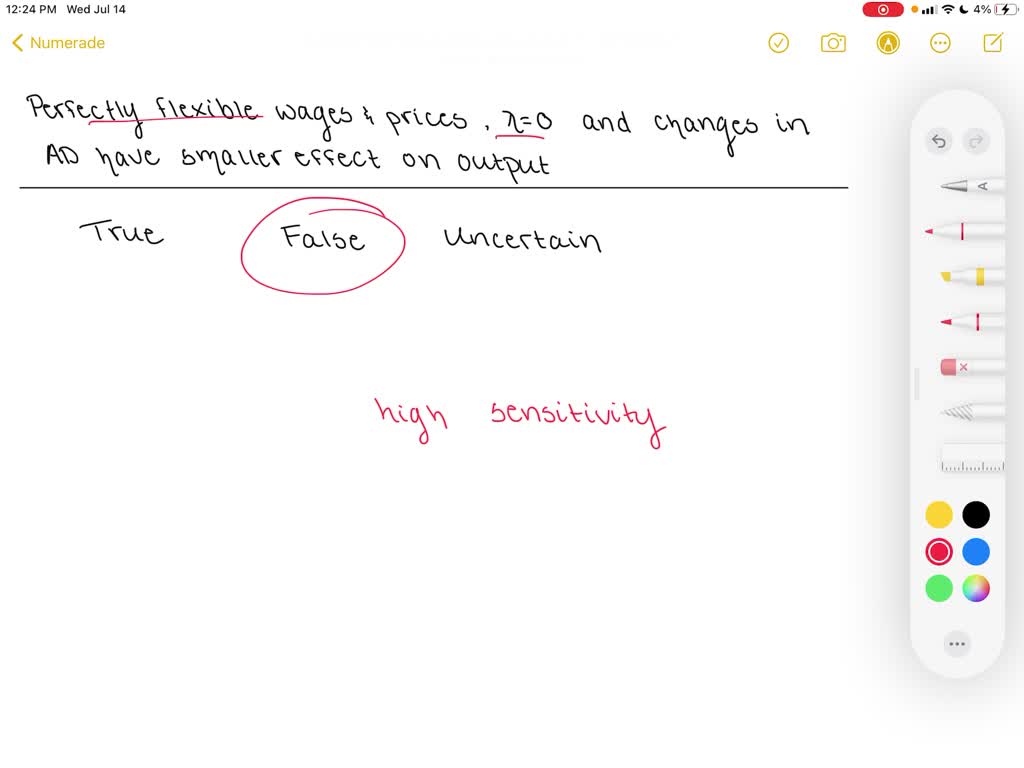 12:24 PM Wed Jul 14
4%
Numerade
Perfectly flexible wages & prices, λ=0 and changes in
AD have smaller effect on output
True False Uncertain
high sensitivity